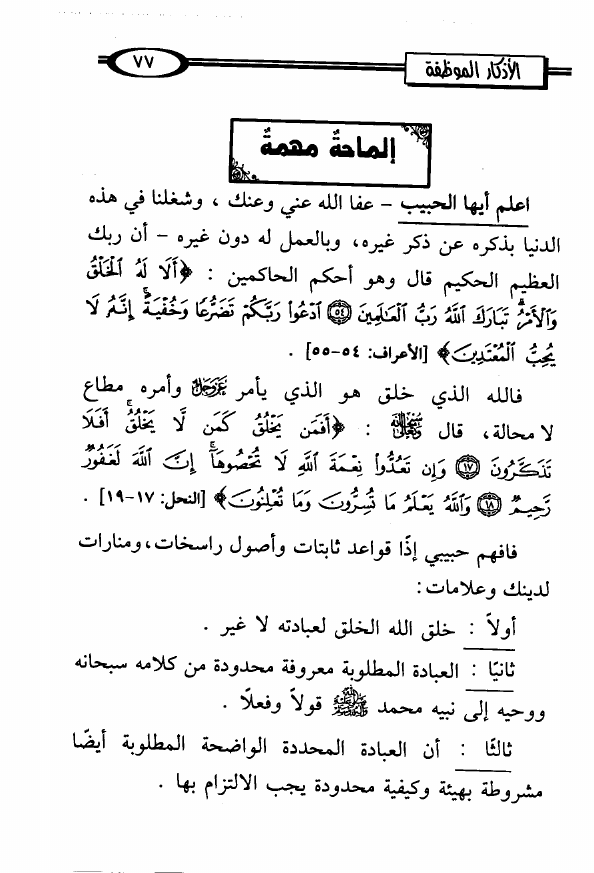 الأذكار الموظفة
٧٧
إلماحةٌ مهمةٌ
اعلم أيها الحبيب – عفا الله عني وعنك ، وشغلنا في هذه
الدنيا بذكره عن ذكر غيره، وبالعمل له دون غيره – أن ربك
العظيم الحكيم قال وهو أحكم الحاكمين : ﴿أَلَا لَهُ الْخَلْقُ
وَالْأَمْرُ تَبَارَكَ اللَّهُ رَبُّ الْعَالَمِينَ ٥٤ ادْعُوا رَبَّكُمْ تَضَرُّعًا وَخُفْيَةً إِنَّهُ لَا
يُحِبُّ الْمُعْتَدِينَ﴾ [الأعراف: ٥٤-٥٥] .
فالله الذي خلق هو الذي يأمر عَزَّ وَجَلَّ وأمره مطاع
لا محالة، قال : ﴿أَفَمَن يَخْلُقُ كَمَن لَّا يَخْلُقُ أَفَلَا
تَذَكَّرُونَ ١٧ وَإِن تَعُدُّوا نِعْمَةَ اللَّهِ لَا تُحْصُوهَا إِنَّ اللَّهَ لَغَفُورٌ
رَّحِيمٌ ١٨ وَاللَّهُ يَعْلَمُ مَا تُسِرُّونَ وَمَا تُعْلِنُونَ﴾ [النحل: ١٧-١٩] .
فافهم حبيبي إذًا قواعد ثابتات وأصول راسخات، ومنارات
لدينك وعلامات:
أولاً : خلق الله الخلق لعبادته لا غير .
ثانيًا : العبادة المطلوبة معروفة محدودة من كلامه سبحانه
ووحيه إلى نبيه محمد ﷺ قولاً وفعلاً .
ثالثًا : أن العبادة المحددة الواضحة المطلوبة أيضًا
مشروطة بهيئة وكيفية محدودة يجب الالتزام بها .